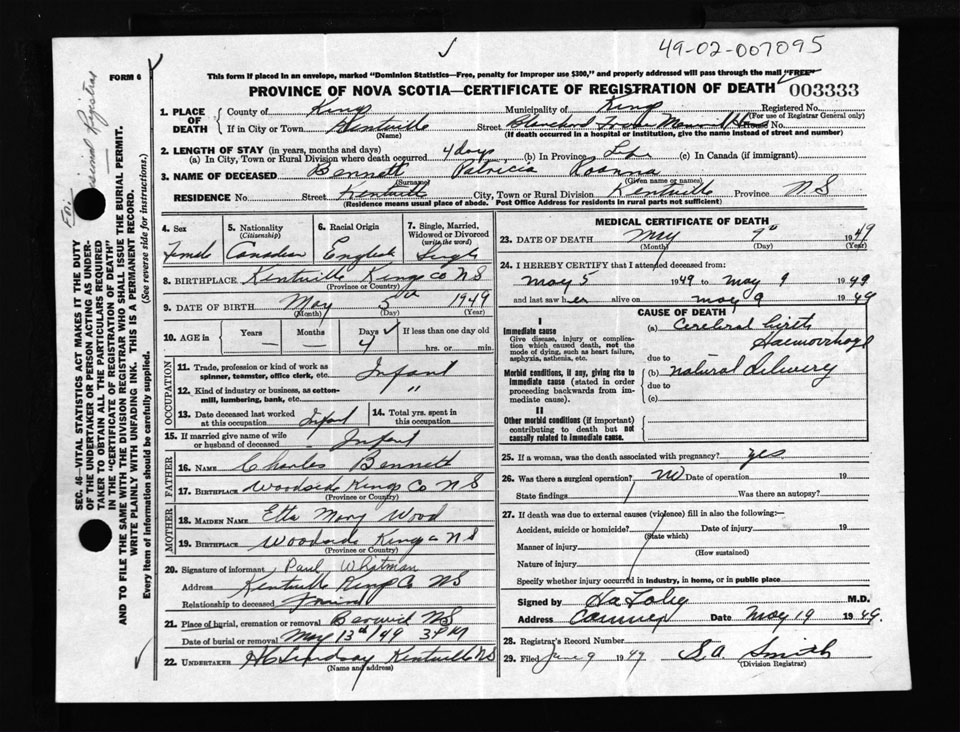 49-02-007095
FORM 6
This form if placed in an envelope, marked "Dominion Statistics—Free, penalty for improper use $300," and properly addressed will pass through the mail "FREE"
PROVINCE OF NOVA SCOTIA—CERTIFICATE OF REGISTRATION OF DEATH
003333
1. PLACE OF DEATH
County of Kings Municipality of Kings Registered No.
(For use of Registrar General only)
If in City or Town Kentville Street Blanchard Fraser Memorial House No.
(Name) (If death occurred in a hospital or institution, give the name instead of street and number)
2. LENGTH OF STAY (in years, months and days)
(a) In City, Town or Rural Division where death occurred 4 days (b) In Province Life (c) In Canada (if immigrant)
3. NAME OF DECEASED Bennett Patricia
(Surname) (Given name or names)
RESIDENCE No. Street Kentville City, Town or Rural Division Kentville Province NS
(Residence means usual place of abode. Post Office Address for residents in rural parts not sufficient)
4. Sex Female
5. Nationality (Citizenship) Canadian
6. Racial Origin English
7. Single, Married, Widowed or Divorced (write the word) Single
8. BIRTHPLACE Kentville Kings Co NS
(Province or Country)
9. DATE OF BIRTH May 5th 1949
(Month) (Day) (Year)
10. AGE in Years — Months — Days 4 If less than one day old
hrs. or min.
OCCUPATION
11. Trade, profession or kind of work as spinner, teamster, office clerk, etc. Infant
12. Kind of industry or business, as cotton-mill, lumbering, bank, etc. "
13. Date deceased last worked at this occupation Infant
14. Total yrs. spent in this occupation
15. If married give name of wife or husband of deceased Infant
FATHER
16. NAME Charles Bennett
17. BIRTHPLACE Woodside Kings Co NS
(Province or Country)
MOTHER
18. MAIDEN NAME Etta Mary Wood
19. BIRTHPLACE Woodside Kings Co NS
(Province or Country)
20. Signature of informant Paul Whitman
Address Kentville Kings Co NS
Relationship to deceased
21. Place of burial, cremation or removal Berwick NS
Date of burial or removal May 13th/49 3 PM
22. UNDERTAKER Lindsay Kentville NS
(Name and address)
MEDICAL CERTIFICATE OF DEATH
23. DATE OF DEATH May 9th 1949
(Month) (Day) (Year)
24. I HEREBY CERTIFY that I attended deceased from:
May 5 1949 to May 9 1949
and last saw her alive on May 9 1949
CAUSE OF DEATH
I
Immediate cause
Give disease, injury or complication which caused death, not the mode of dying, such as heart failure, asphyxia, asthenia, etc.
(a) Cerebral birth Haemorrhage
due to
Morbid conditions, if any, giving rise to immediate cause (stated in order proceeding backwards from immediate cause).
(b) natural delivery
due to
(c)
II
Other morbid conditions (if important) contributing to death but not causally related to immediate cause.
25. If a woman, was the death associated with pregnancy? yes
26. Was there a surgical operation? no Date of operation 19
State findings Was there an autopsy?
27. If death was due to external causes (violence) fill in also the following:—
Accident, suicide or homicide? Date of injury 19
(State which)
Manner of injury
(How sustained)
Nature of injury
Specify whether injury occurred in industry, in home, or in public place
Signed by M.D.
Address Date May 19 1949
28. Registrar's Record Number
29. Filed June 9 1949 S.A. Smith
(Division Registrar)
Registrar
SEC. 46—VITAL STATISTICS ACT MAKES IT THE DUTY
OF THE UNDERTAKER OR PERSON ACTING AS UNDER-
TAKER TO OBTAIN ALL THE PARTICULARS REQUIRED
IN THE "CERTIFICATE OF REGISTRATION OF DEATH"
AND TO FILE THE SAME WITH THE DIVISION REGISTRAR WHO SHALL ISSUE THE BURIAL PERMIT.
WRITE PLAINLY WITH UNFADING INK. THIS IS A PERMANENT RECORD.
Every item of information should be carefully supplied. (See reverse side for instructions.)